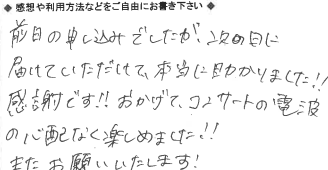 ◆ 感想や利用方法などをご自由にお書き下さい ◆
前日の申し込みでしたが、次の日に
届けていただけて、本当に助かりました!!
感謝です!! おかげで、コンサートの電波
の心配なく楽しめました!!
またお願いいたします!